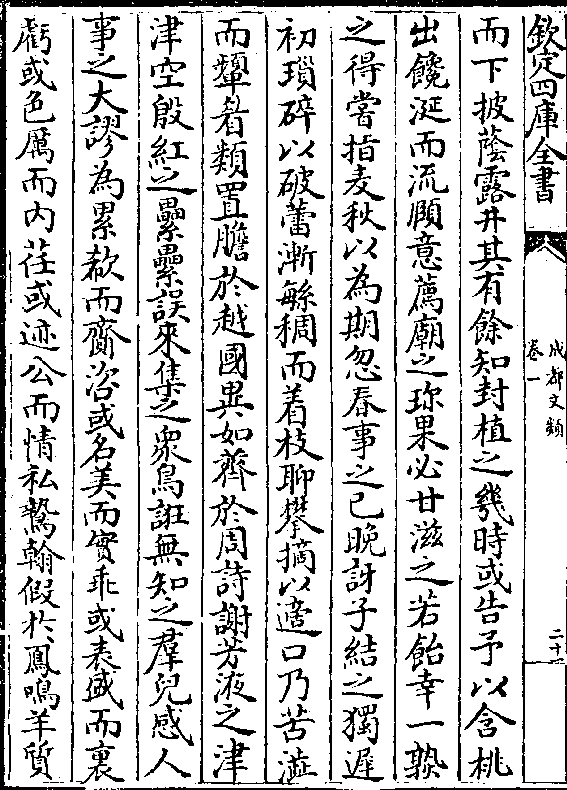 欽定四庫全書
成都文類
卷一
二十
而下披蔭露井其有餘知封植之幾時或告予以含桃
出饞涎而流頤意薦廟之珍果必甘滋之若飴幸一孰
之得嘗指麦秋以為期忽春事之已晩訝子結之獨遲
初瑣碎以破蕾漸緐稠而着枝聊攀摘以適口乃苦澁
而顰眉類置膽於越國異如薺於周詩謝芳液之津
津空殷紅之纍纍誤來集之衆鳥誑無知之羣兒感人
事之大謬為累欷而齎咨或名美而實乖或表盛而裏
虧或色厲而内荏或迹公而情私鷙翰假扵鳳鳴羊質